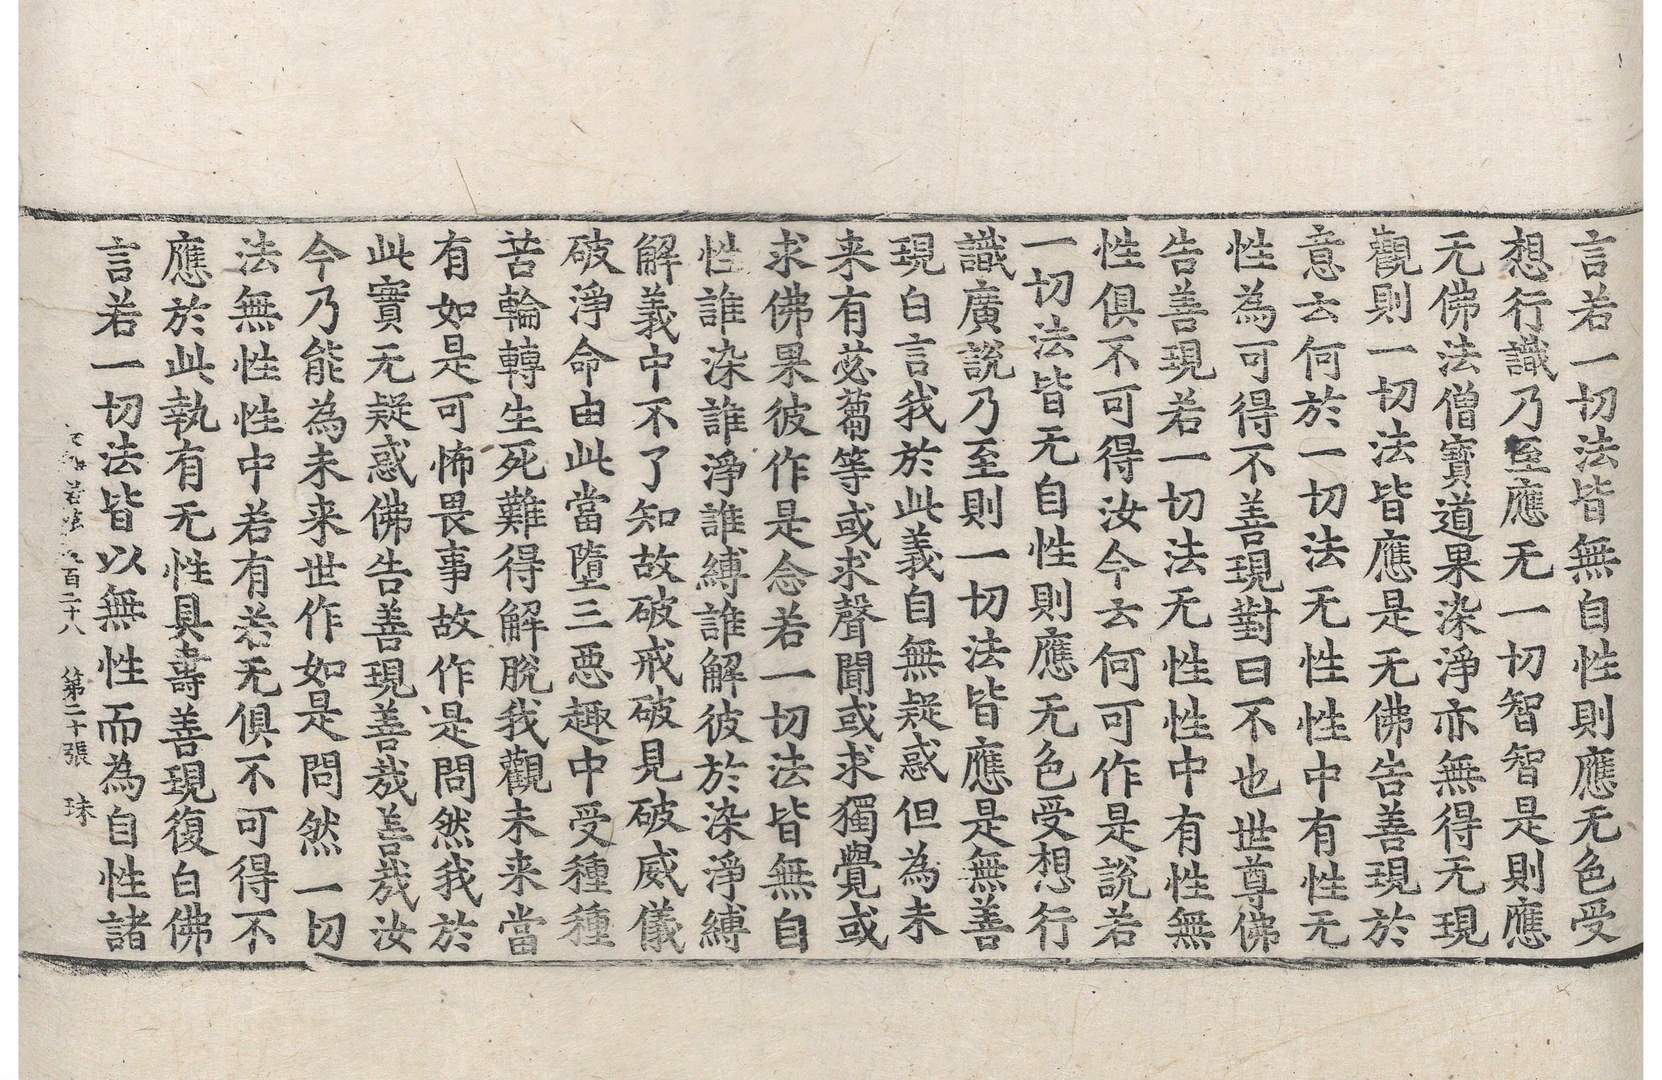 言若一切法皆無自性則應无色受
想行識乃至應无一切智智是則應
无佛法僧寶道果染淨亦無得无現
觀則一切法皆應是无佛告善現於
意云何於一切法无性性中有性无
性為可得不善現對曰不也世尊佛
告善現若一切法无性性中有性無
性俱不可得汝今云何可作是說若
一切法皆无自性則應无色受想行
識廣說乃至則一切法皆應是無善
現白言我於此義自無疑惑但為未
来有苾蒭等或求聲聞或求獨覺或
求佛果彼作是念若一切法皆無自
性誰染誰淨誰縛誰解彼於染淨縛
解義中不了知故破戒破見破威儀
破淨命由此當墮三惡趣中受種種
苦輪轉生死難得解脫我觀未来當
有如是可怖畏事故作是問然我於
此實无疑惑佛告善現善哉善哉汝
今乃能為未来世作如是問然一切
法無性性中若有若无俱不可得不
應於此執有无性具壽善現復白佛
言若一切法皆以無性而為自性諸
百二十八 第二十張 珠